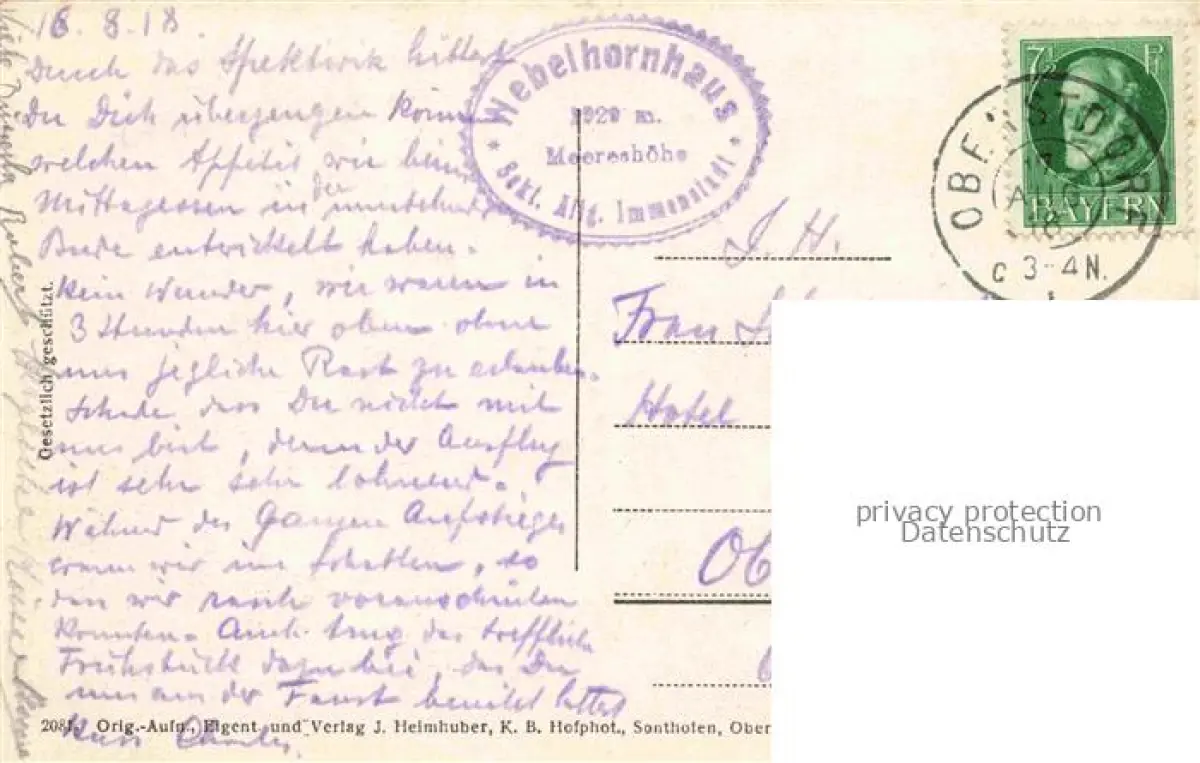 16.8.18.
Durch das Spektivik hättest
Du Dich überzeugen können
welchen Appetit wir beim
Mittagessen in der
Bude entwickelt haben.
Kein Wunder, wir waren in
3 Stunden hier oben ohne
uns jegliche Rast zu erlauben.
Schade dass Du nicht mit
uns bist, denn der Ausflug
ist sehr sehr lohnend.
Während des Ganzen Aufstieges
waren wir im Schatten, so
dass wir rasch voranschreiten
konnten. Auch trug das treffliche
Frühstück dazu bei, das Du
uns an der Faust bereitet hattest
Gesetzlich geschützt.
2081. Orig.-Aufn., Eigent. und Verlag J. Heimhuber, K. B. Hofphot., Sonthofen, Ober
* Nebelhornhaus *
1929 m.
Meereshöhe
Sekt. Allg. Immenstadt
7½ P
BAYERN
OBERSTDORF
7
AUG
18
C 3-4 N.
I. H.
Frau
Hotel
Ob
privacy protection
Datenschutz